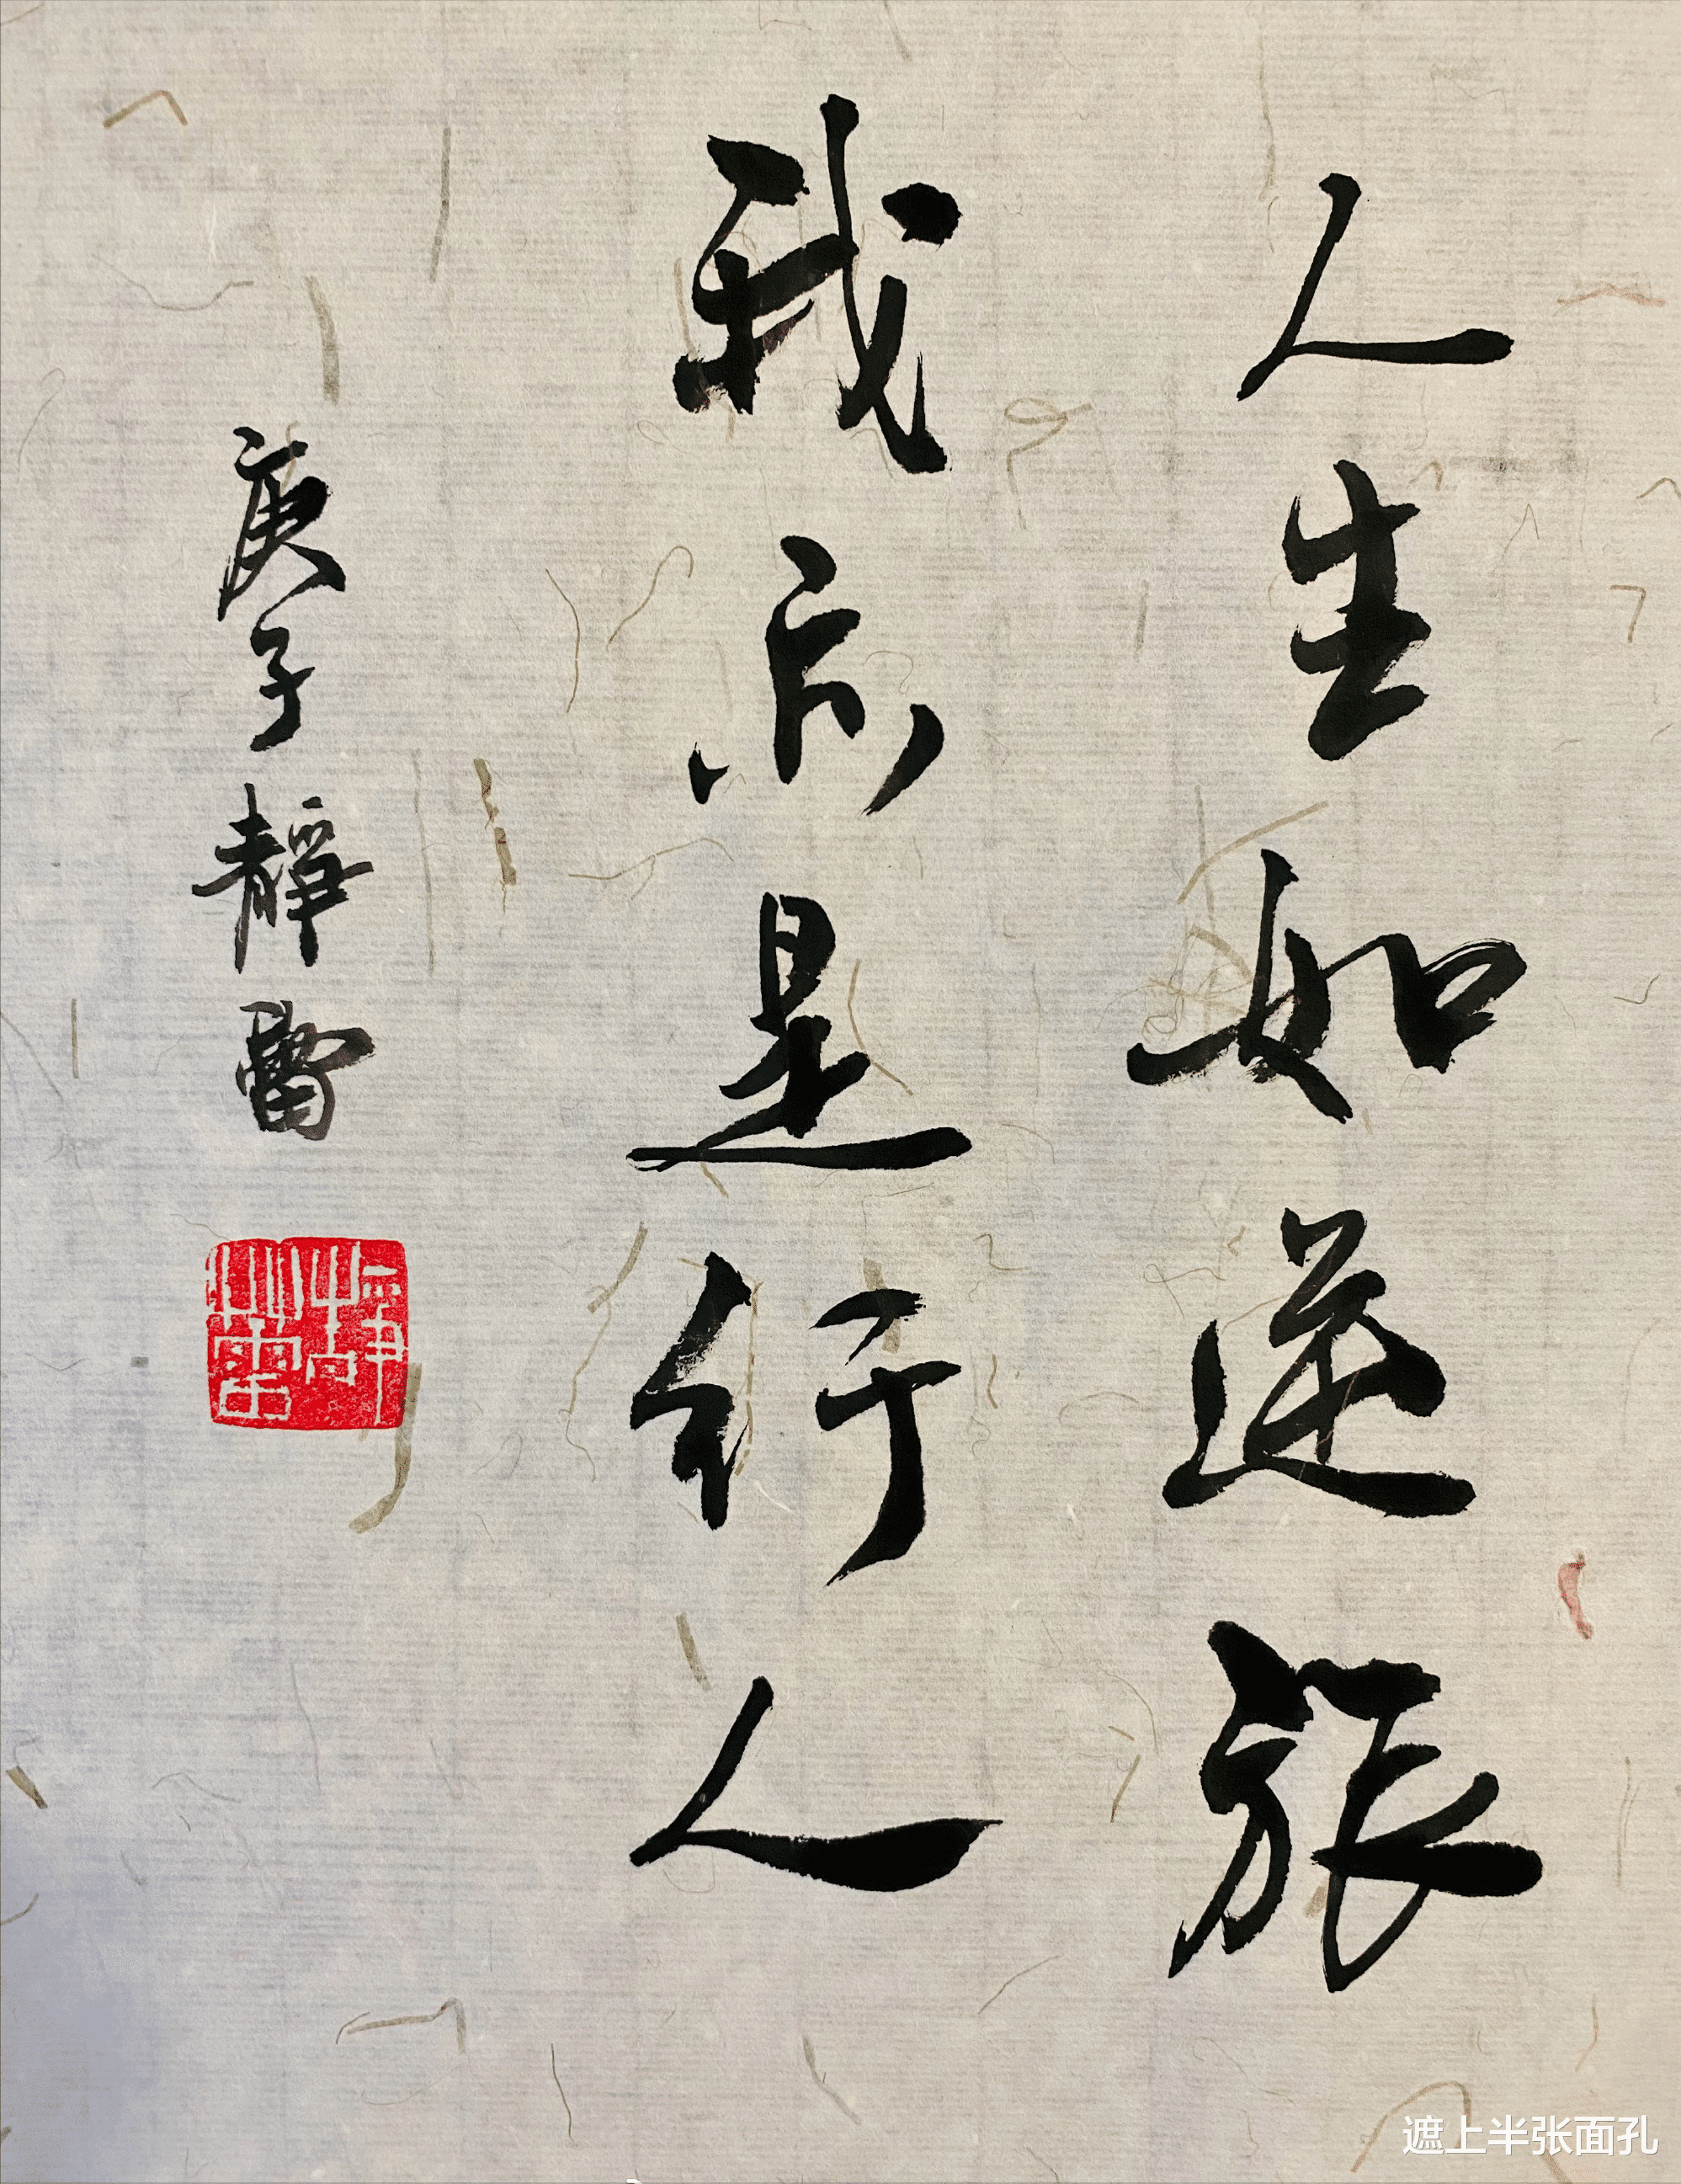 人生如逆旅
我亦是行人
庚子靜蕾
靜蕾
遮上半张面孔